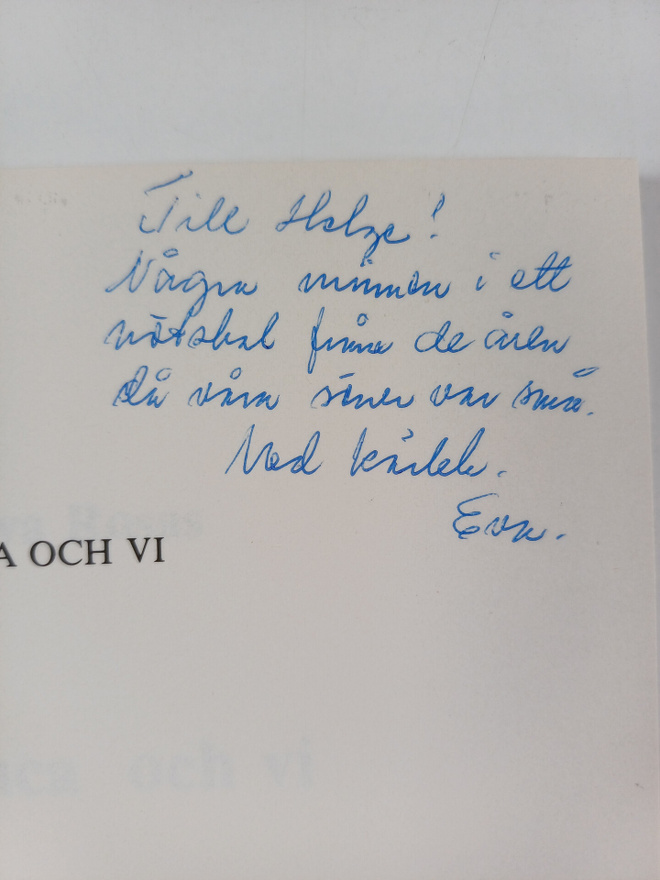 Till Helge!
Några minnen i ett
nötskal från de åren
då våra söner var små.
Med kärlek.
Eva.
va Rosas
A OCH VI
ica och vi